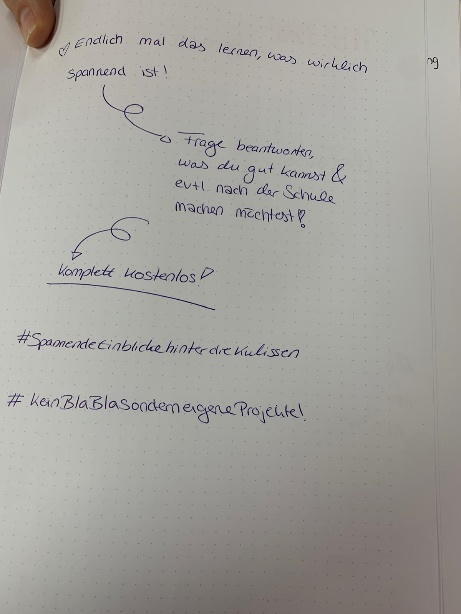 Endlich mal das lernen, was wirklich
spannend ist!
Frage beantworten,
was du gut kannst &
evtl. nach der Schule
machen möchtest!
Komplett kostenlos!
#SpannendeEinblickehinterdieKulissen
#KeinBlaBlasonderneigeneProjekte!